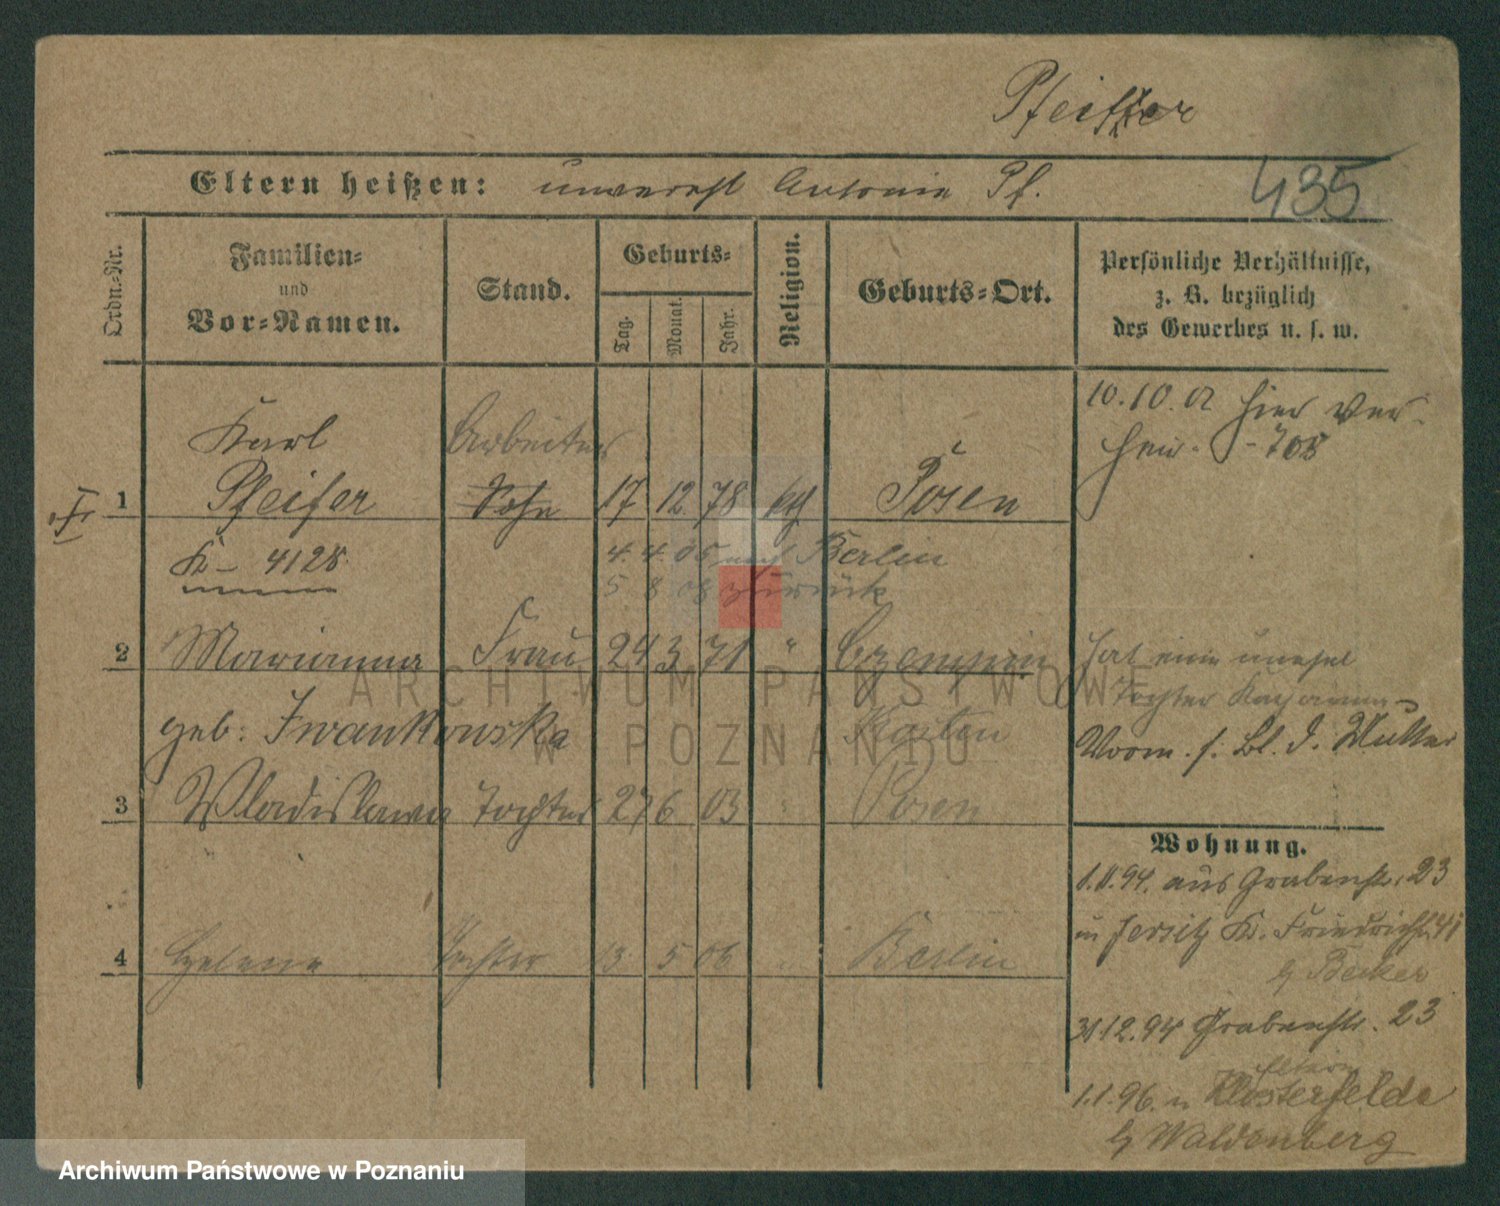 Pfeiffer
Eltern heißen: unverehl Antonie Pf.
435
Ordn.-Nr.
Familien- und Vor-Namen.
Stand.
Geburts-
Tag.
Monat.
Jahr.
Religion.
Geburts-Ort.
Persönliche Verhältnisse,
z. B. bezüglich
des Gewerbes u. s. w.
Karl Arbeiter
1 Pfeifer Sohn 17 12 78 kth Posen
10.10.02 hier ver-
heir. - 708
K - 4128
4. 4. 05 nach Berlin
5 8 08 zurück
2 Marianna Frau 24 3 71 " Czempin
geb: Iwankowska Kosten
hat eine unehel
Tochter
Vorm. s. Bl. d. Mutter
3 Wladislawa Tochter 27 6 03 " Posen
4 Helene Tochter 13 5 06 " Berlin
Wohnung.
1.11.94. aus Grabenstr. 23
n Jersitz K. Friedrichstr 41
b Becker
31.12.94 Grabenstr. 23
1.1.96. n Klosterfelde
b Waldenberg
ARCHIWUM PAŃSTWOWE
W POZNANIU
Archiwum Państwowe w Poznaniu